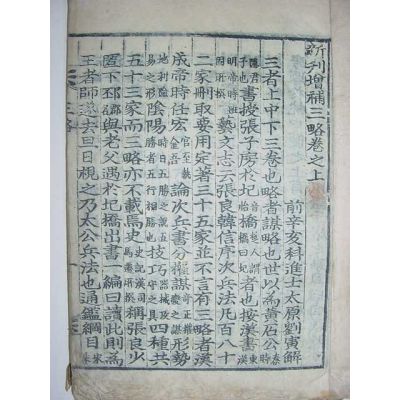 新刊增補三略卷之上
前辛亥科進士太原劉寅解
三者上中下三卷也略者謀略也世以為黃石公
書授張子房於圯者也按漢書
藝文志云張良韓信序次兵法凡百八十
二家刪取要用定著三十五家並不言有三略者漢
成帝時任宏論次兵書分權謀形勢
陰陽技巧四種共
五十三家而三略亦不載焉史稱張良少
匿下邳與老父遇於圯橋出書一編曰讀此則為
王者師遂去旦日視之乃太公兵法也通鑑綱目